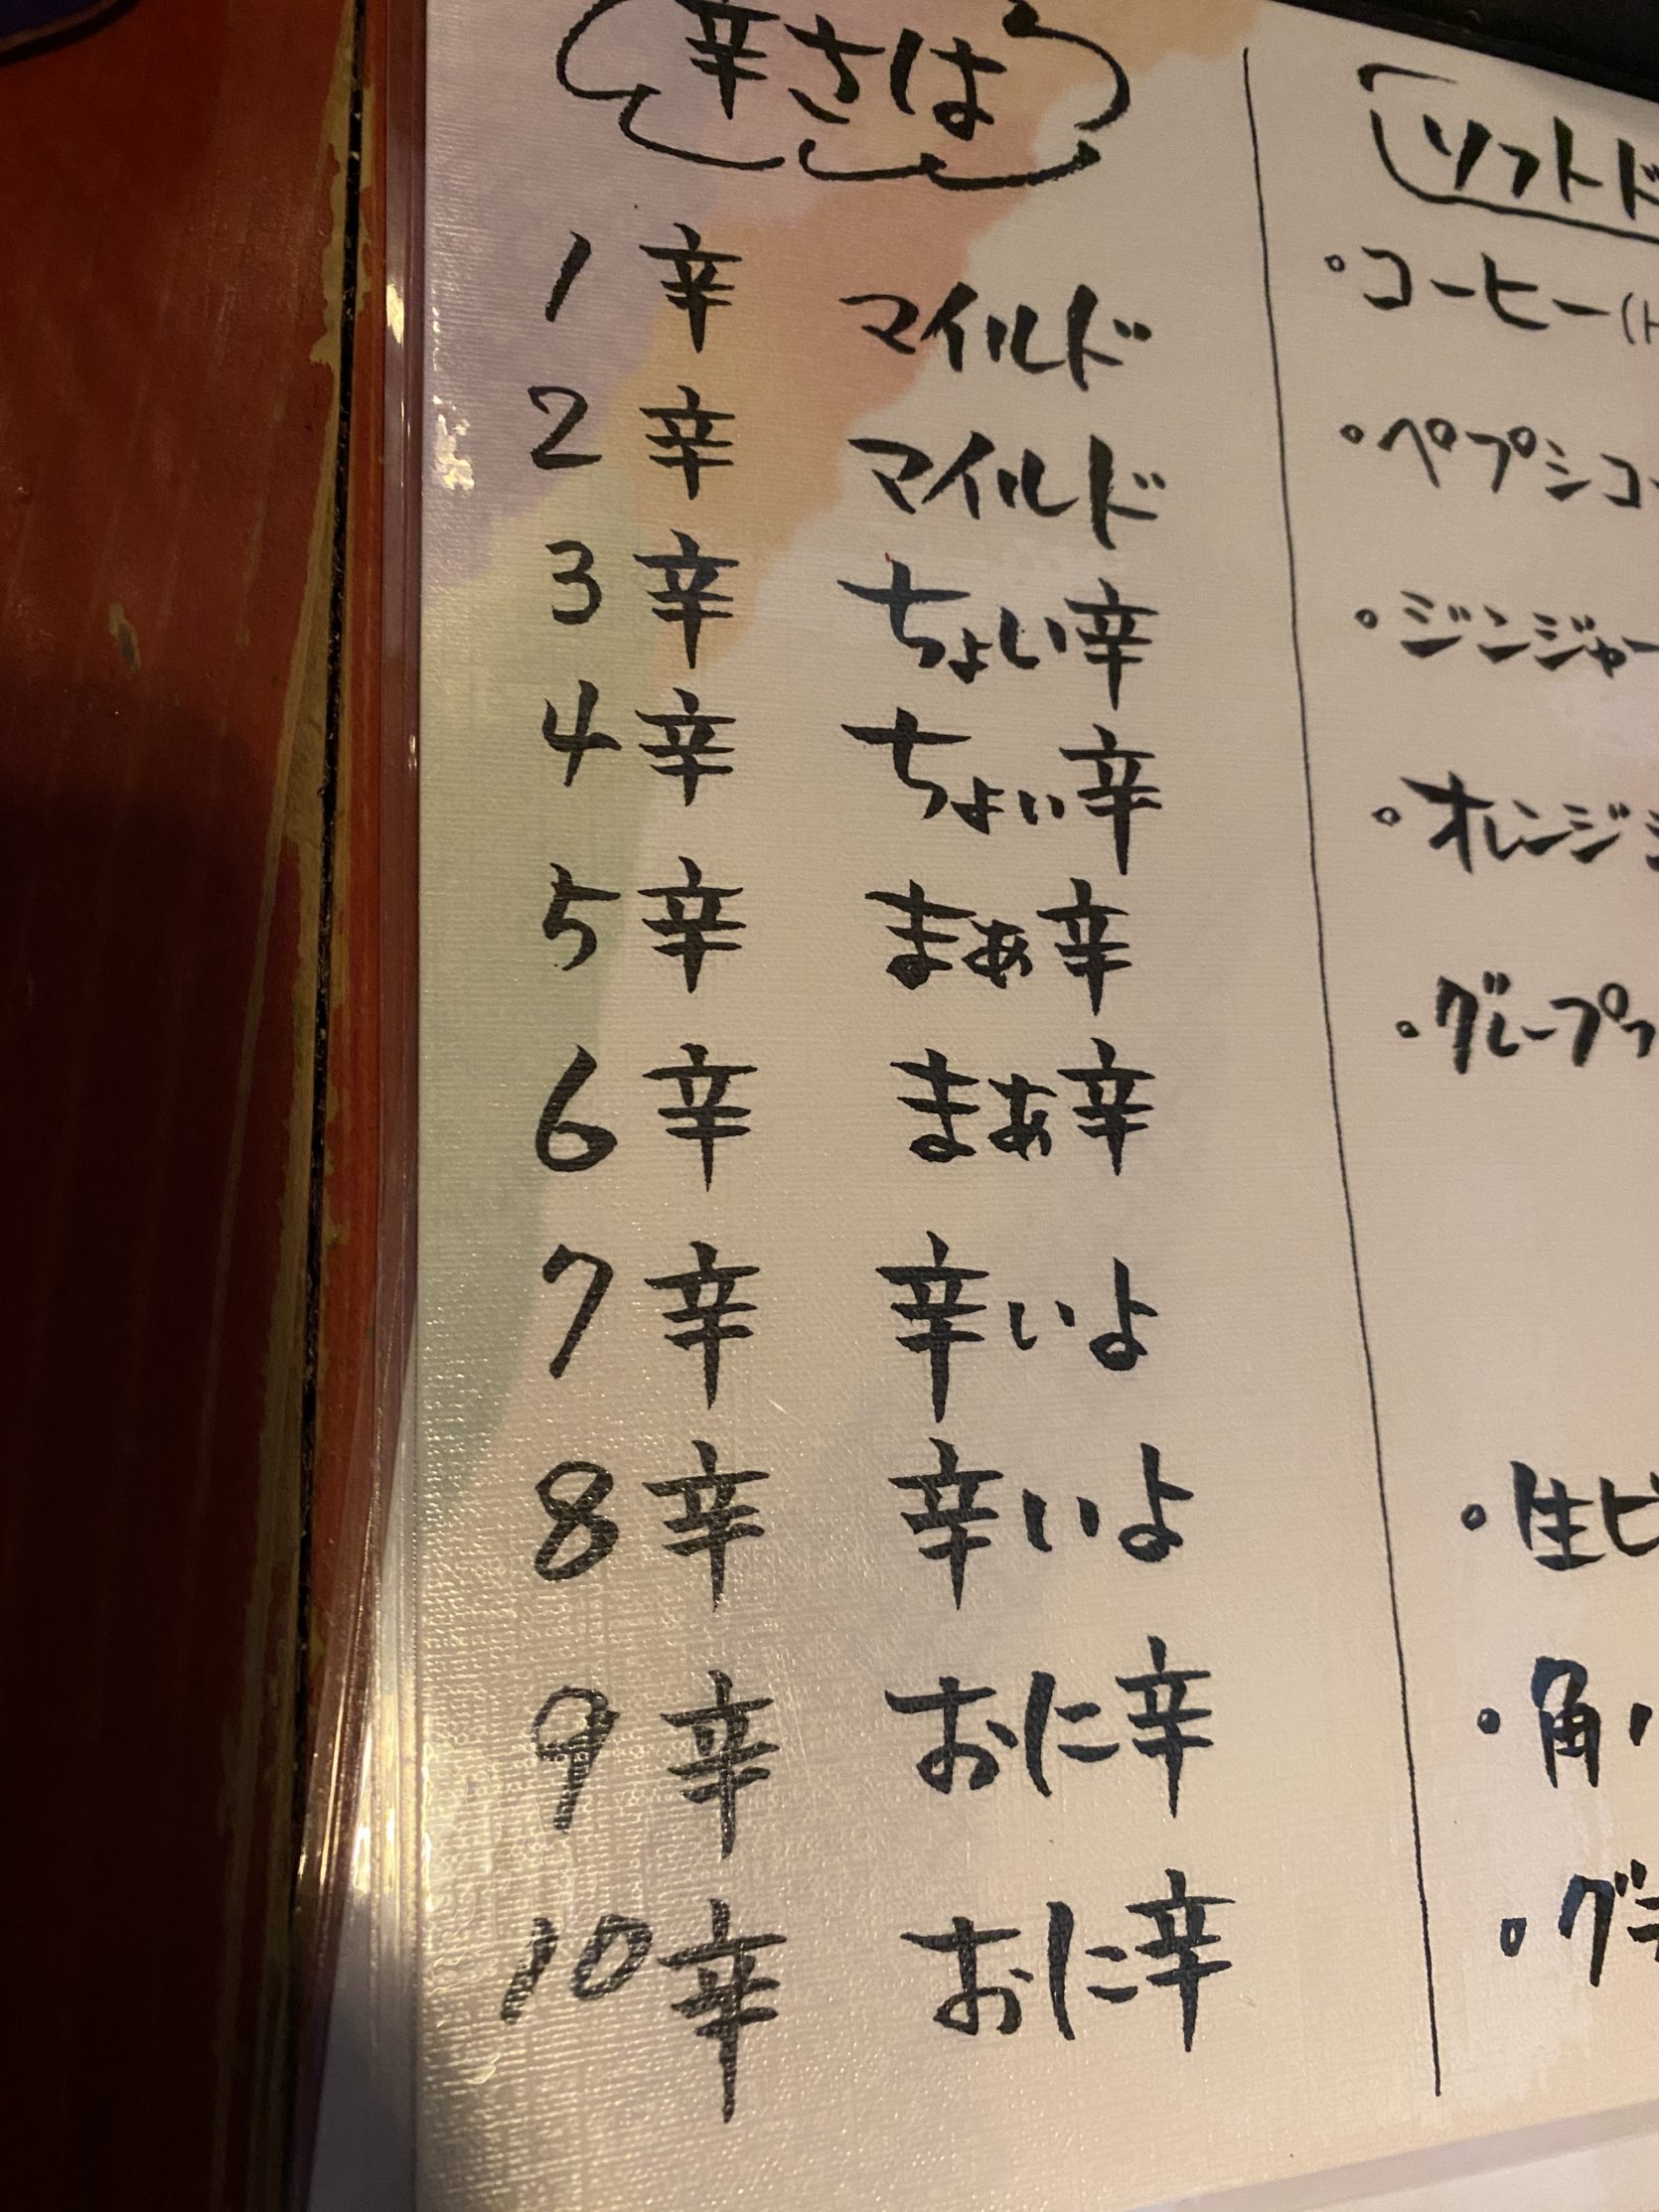 辛さは
1辛 マイルド
2辛 マイルド
3辛 ちょい辛
4辛 ちょい辛
5辛 まぁ辛
6辛 まぁ辛
7辛 辛いよ
8辛 辛いよ
9辛 おに辛
10辛 おに辛
ソフトド
・コーヒー(ト
・ペプシコー
・ジンジャー
・オレンジジ
・グレープフ
・生ビ
・角ハ
・グラ